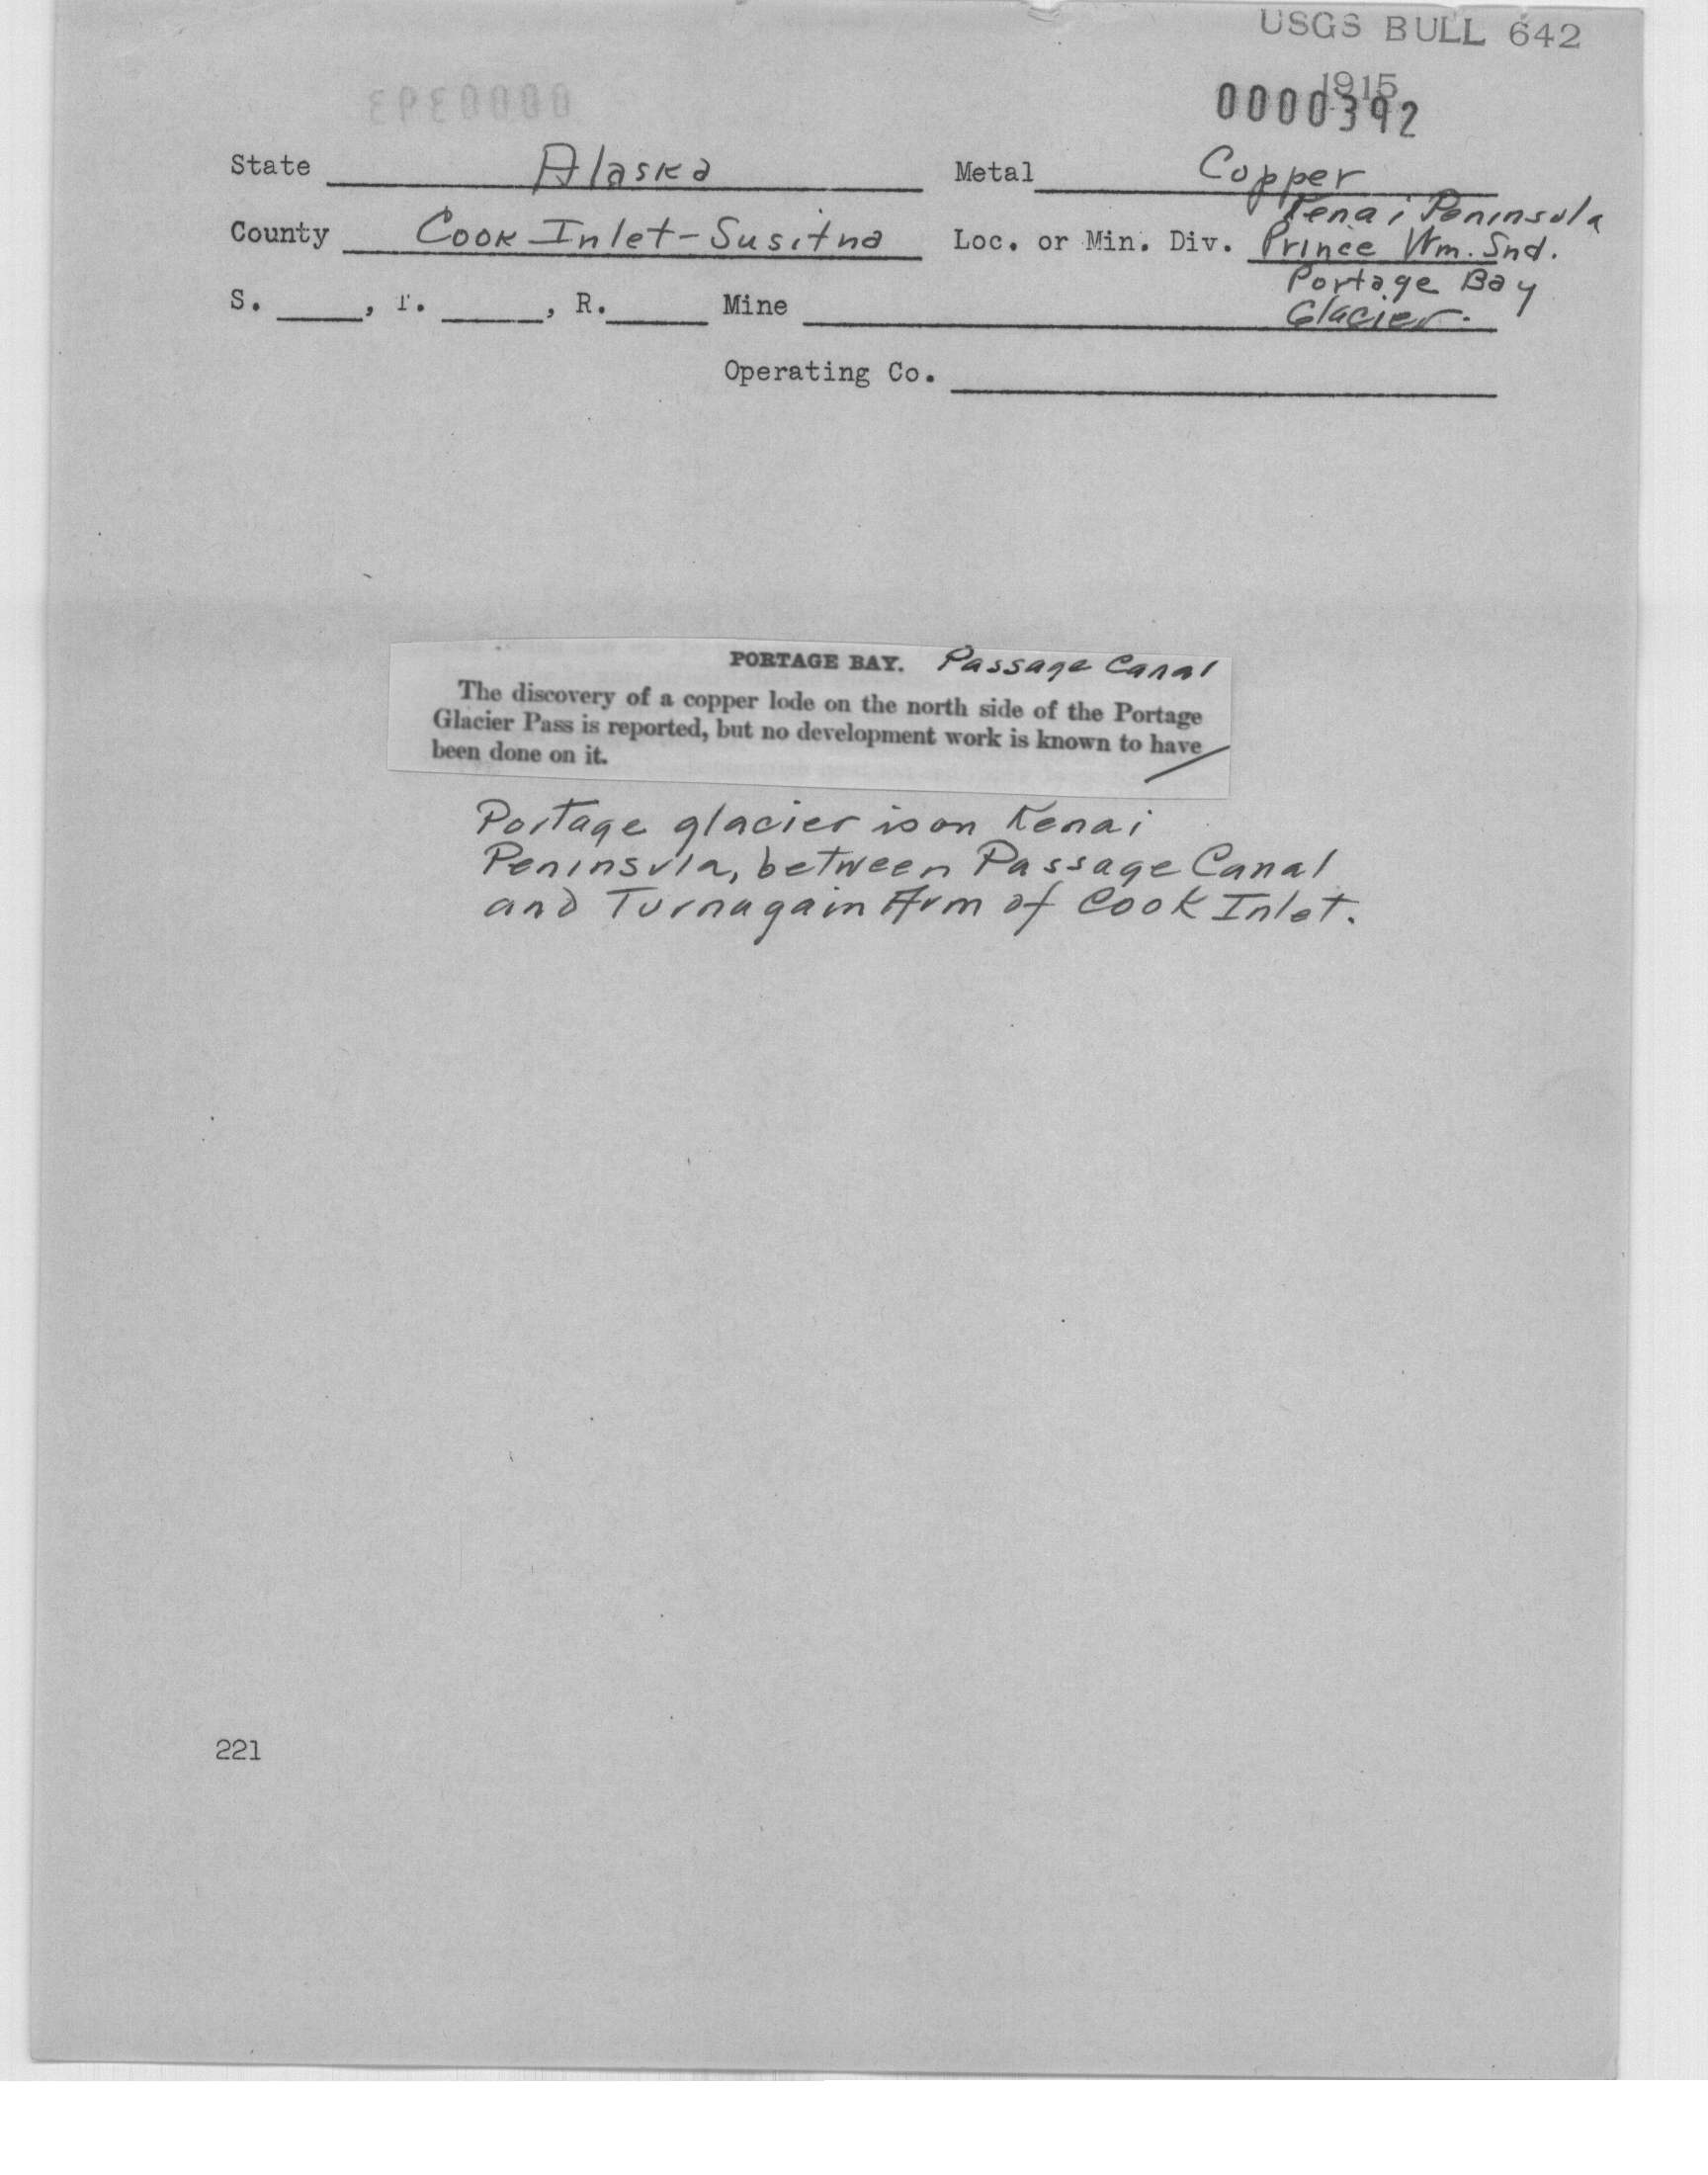 USGS BULL 642
1915
0000392
0000393
State Alaska Metal Copper
Kenai Peninsula
County Cook Inlet-Susitna Loc. or Min. Div. Prince Wm. Snd.
Portage Bay
S. , T. , R. Mine Glacier.
Operating Co.
PORTAGE BAY. Passage Canal
The discovery of a copper lode on the north side of the Portage
Glacier Pass is reported, but no development work is known to have
been done on it.
Portage glacier is on Kenai
Peninsula, between Passage Canal
and Turnagain Arm of Cook Inlet.
221